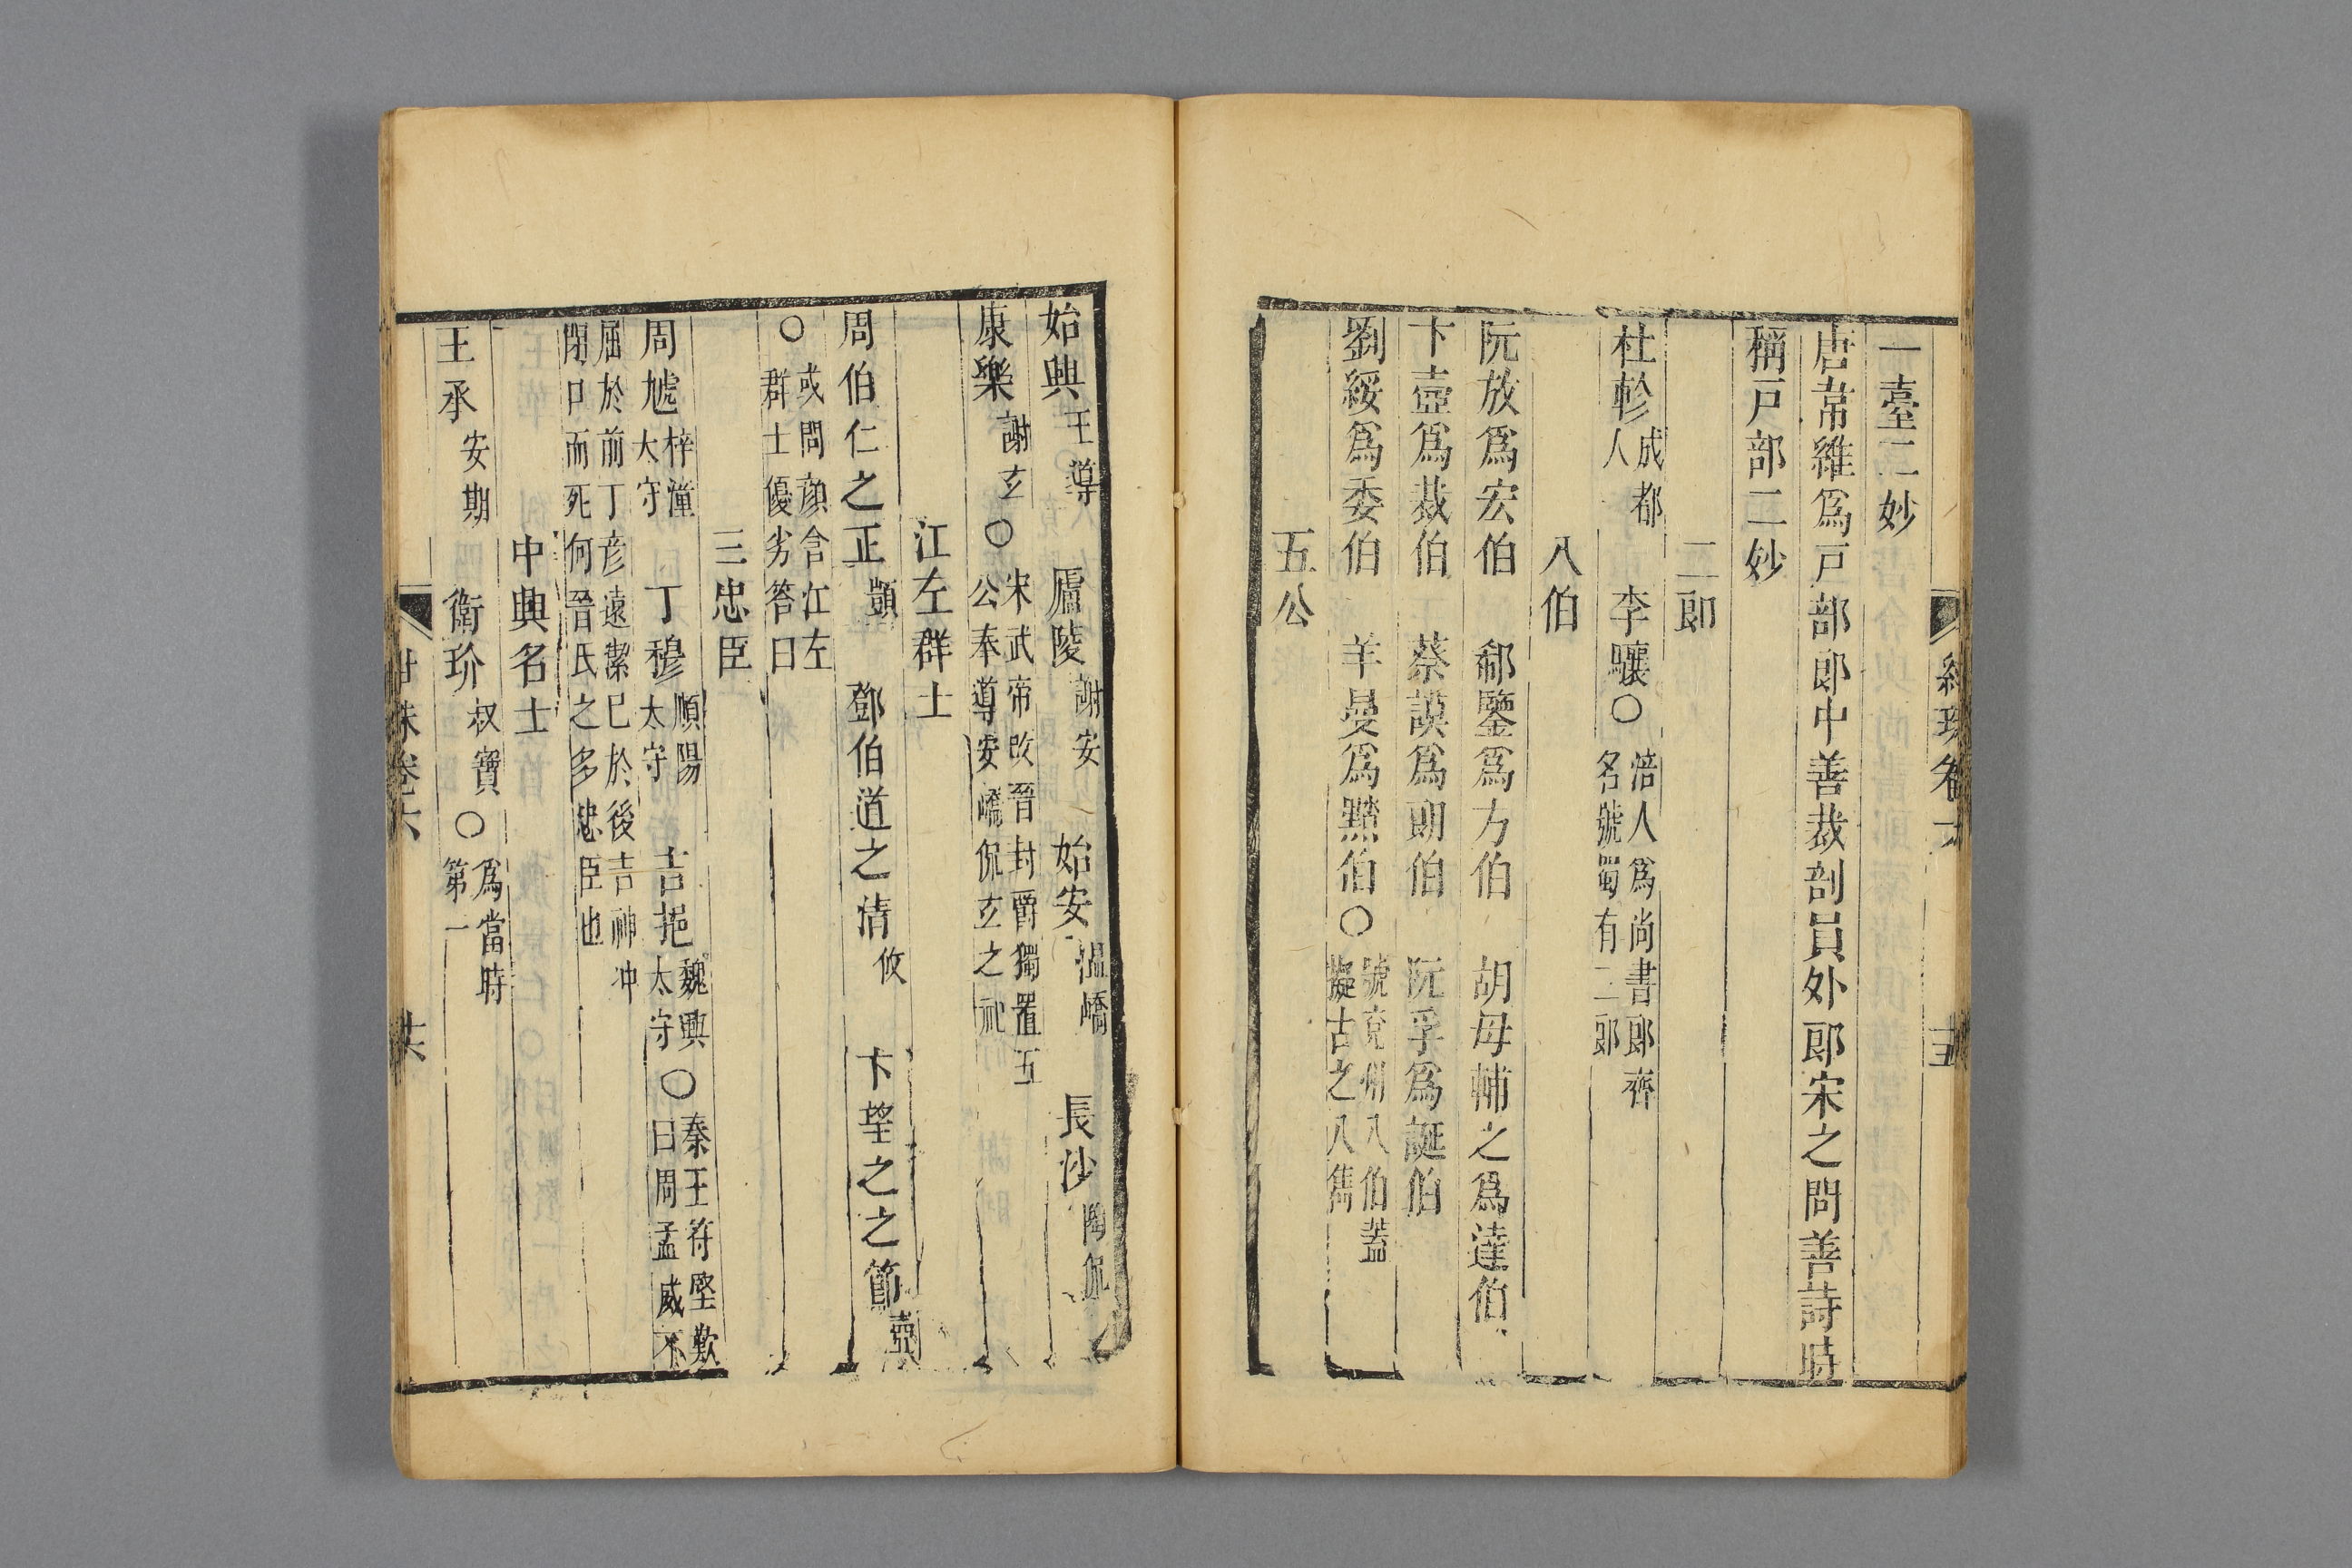 一臺二妙
唐韋維爲戸部郎中善裁剖員外郎宋之問善詩時
稱戸部二妙
二郎
杜軫成都人 李驤〇涪人爲尚書郎齊名號蜀有二郎
八伯
阮放爲宏伯 郗鑒爲方伯 胡毋輔之爲達伯
卞壼爲裁伯 蔡謨爲朗伯 阮孚爲誕伯
劉綏爲委伯 羊曼爲黯伯〇號兗州八伯蓋擬古之八雋
五公
始興王導 廬陵謝安 始安温嶠 長沙陶侃
康樂謝玄〇宋武帝改晉封爵獨置五公奉導安嶠侃玄之祀
江左群士
周伯仁之正顗 鄧伯道之清攸 卞望之之節壼
〇或問顔含江左群士優劣答曰
三忠臣
周虓梓潼太守 丁穆順陽太守 吉挹魏興太守〇秦王苻堅歎曰周孟威不
屈於前丁彦遠潔已於後吉祖冲閉口而死何晉氏之多忠臣也
中興名士
王承安期 衛玠叔寶〇爲當時第一
卷六